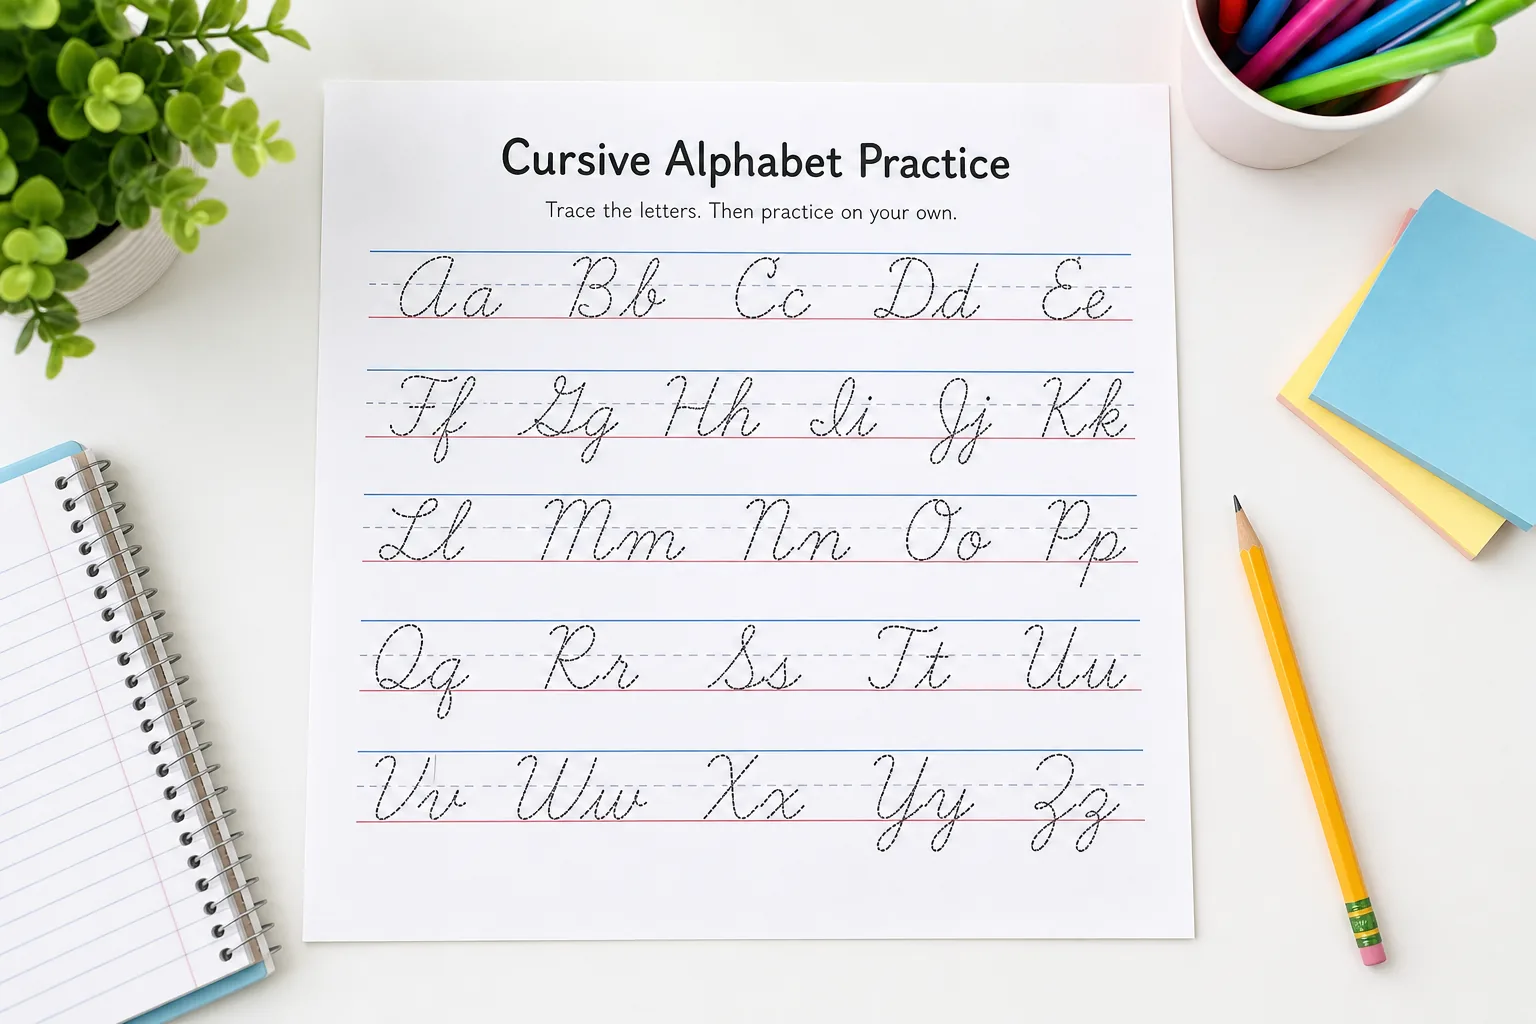 Cursive Alphabet Practice
Trace the letters. Then practice on your own.
Aa Bb Cc Dd Ee
Ff Gg Hh Ii Jj Kk
Ll Mm Nn Oo Pp
Qq Rr Ss Tt Uu
Vv Ww Xx Yy Zz